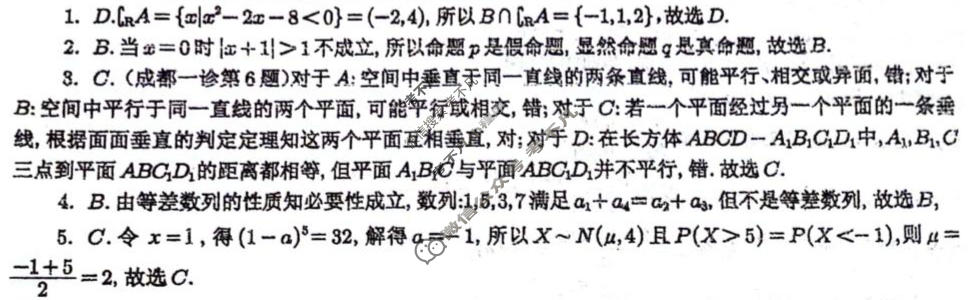 1. D.∁_RA={x|x²-2x-8<0}=(-2,4), 所以B∩∁_RA={-1,1,2},故选D.
2. B.当x=0时|x+1|>1不成立, 所以命题p是假命题, 显然命题q是真命题, 故选B.
3. C.(成都一诊第6题)对于A:空间中垂直于同一直线的两条直线, 可能平行、相交或异面, 错;对于
B:空间中平行于同一直线的两个平面, 可能平行或相交, 错;对于C:若一个平面经过另一个平面的一条垂
线, 根据面面垂直的判定定理知这两个平面互相垂直, 对;对于D:在长方体ABCD-A₁B₁C₁D₁中,A₁,B₁,C
三点到平面ABC₁D₁的距离都相等, 但平面A₁B₁C与平面ABC₁D₁并不平行, 错. 故选C.
4. B. 由等差数列的性质知必要性成立, 数列:1,5,3,7满足a₁+a₄=a₂+a₃, 但不是等差数列, 故选B,
5. C.令 x=1, 得(1-a)⁵=32, 解得a=-1, 所以X~N(μ,4)且P(X>5)=P(X<-1),则μ=
(-1+5)/2=2, 故选C.